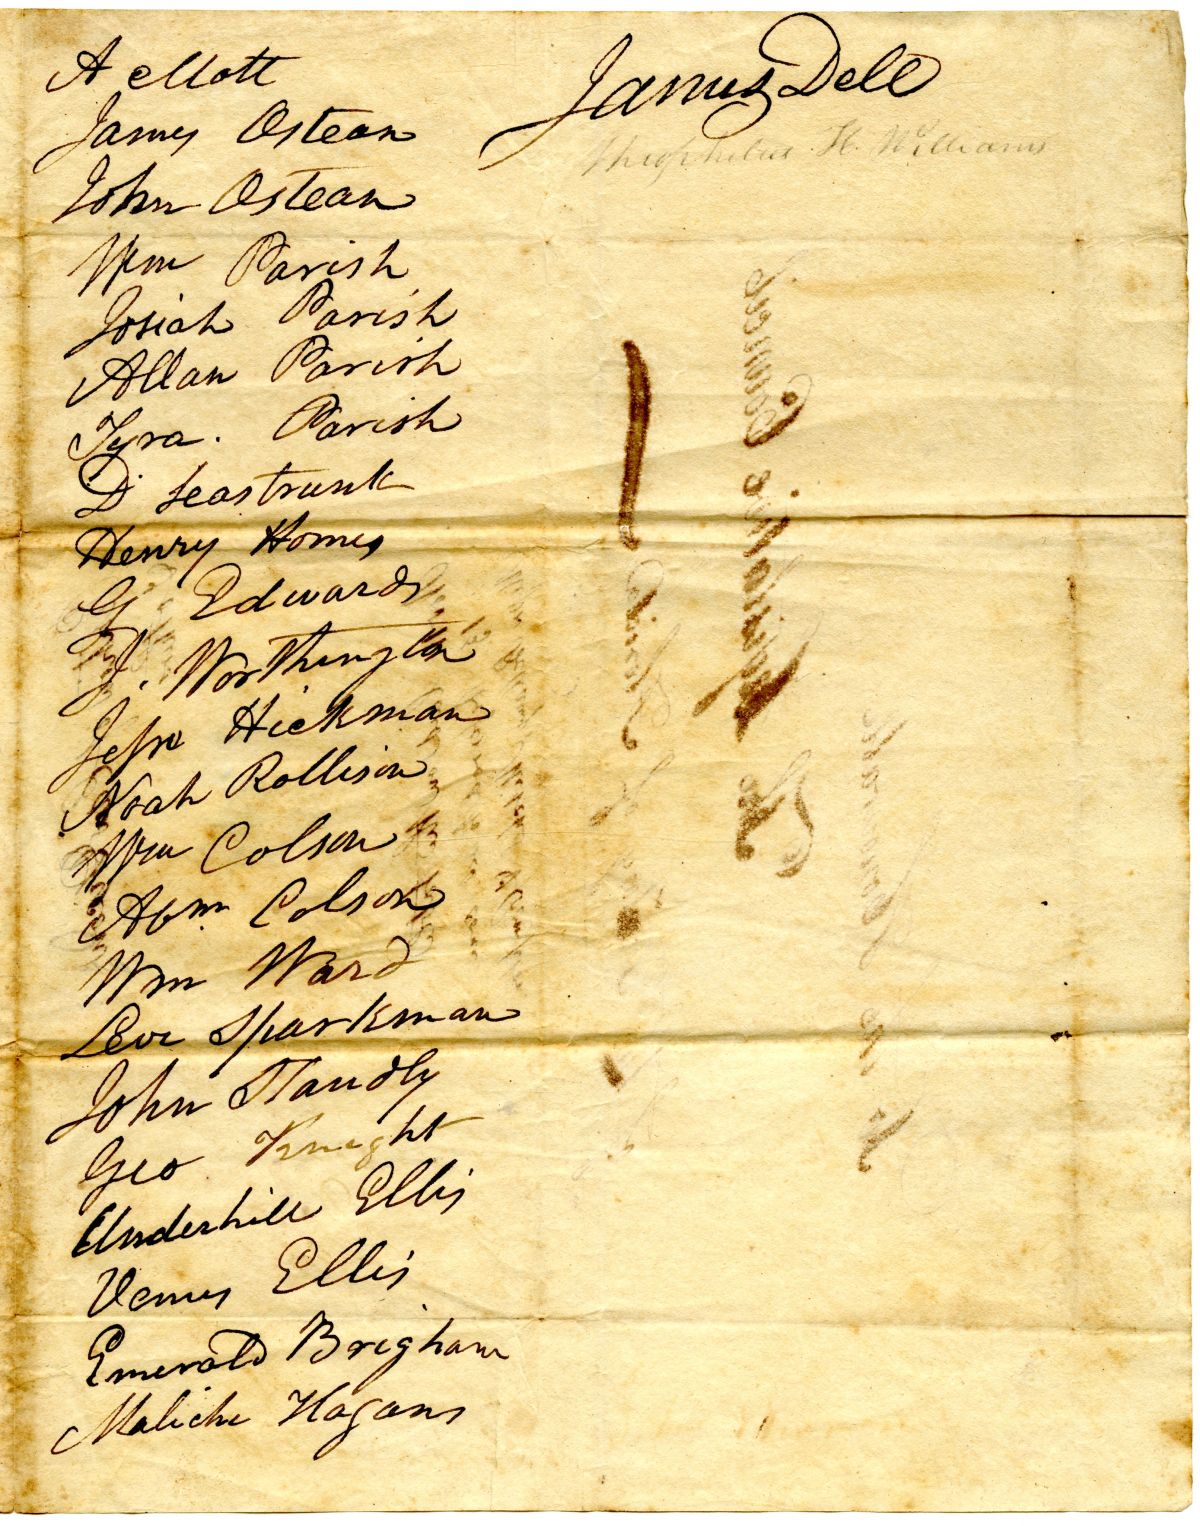 A Mott
James Ostean
John Ostean
Wm Parish
Josiah Parish
Allan Parish
Tyra. Parish
D Seastrunk
Henry Homes
G Edwards
J. Worthington
Jesse Hickman
Noah Rollison
Wm Colson
Abm Colson
Wm Ward
Levi Sparkman
John Standly
Geo Knight
Underhill Ellis
Venus Ellis
Emerald Brigham
Maliche Hagans
James Dell
Theophilus H. Williams